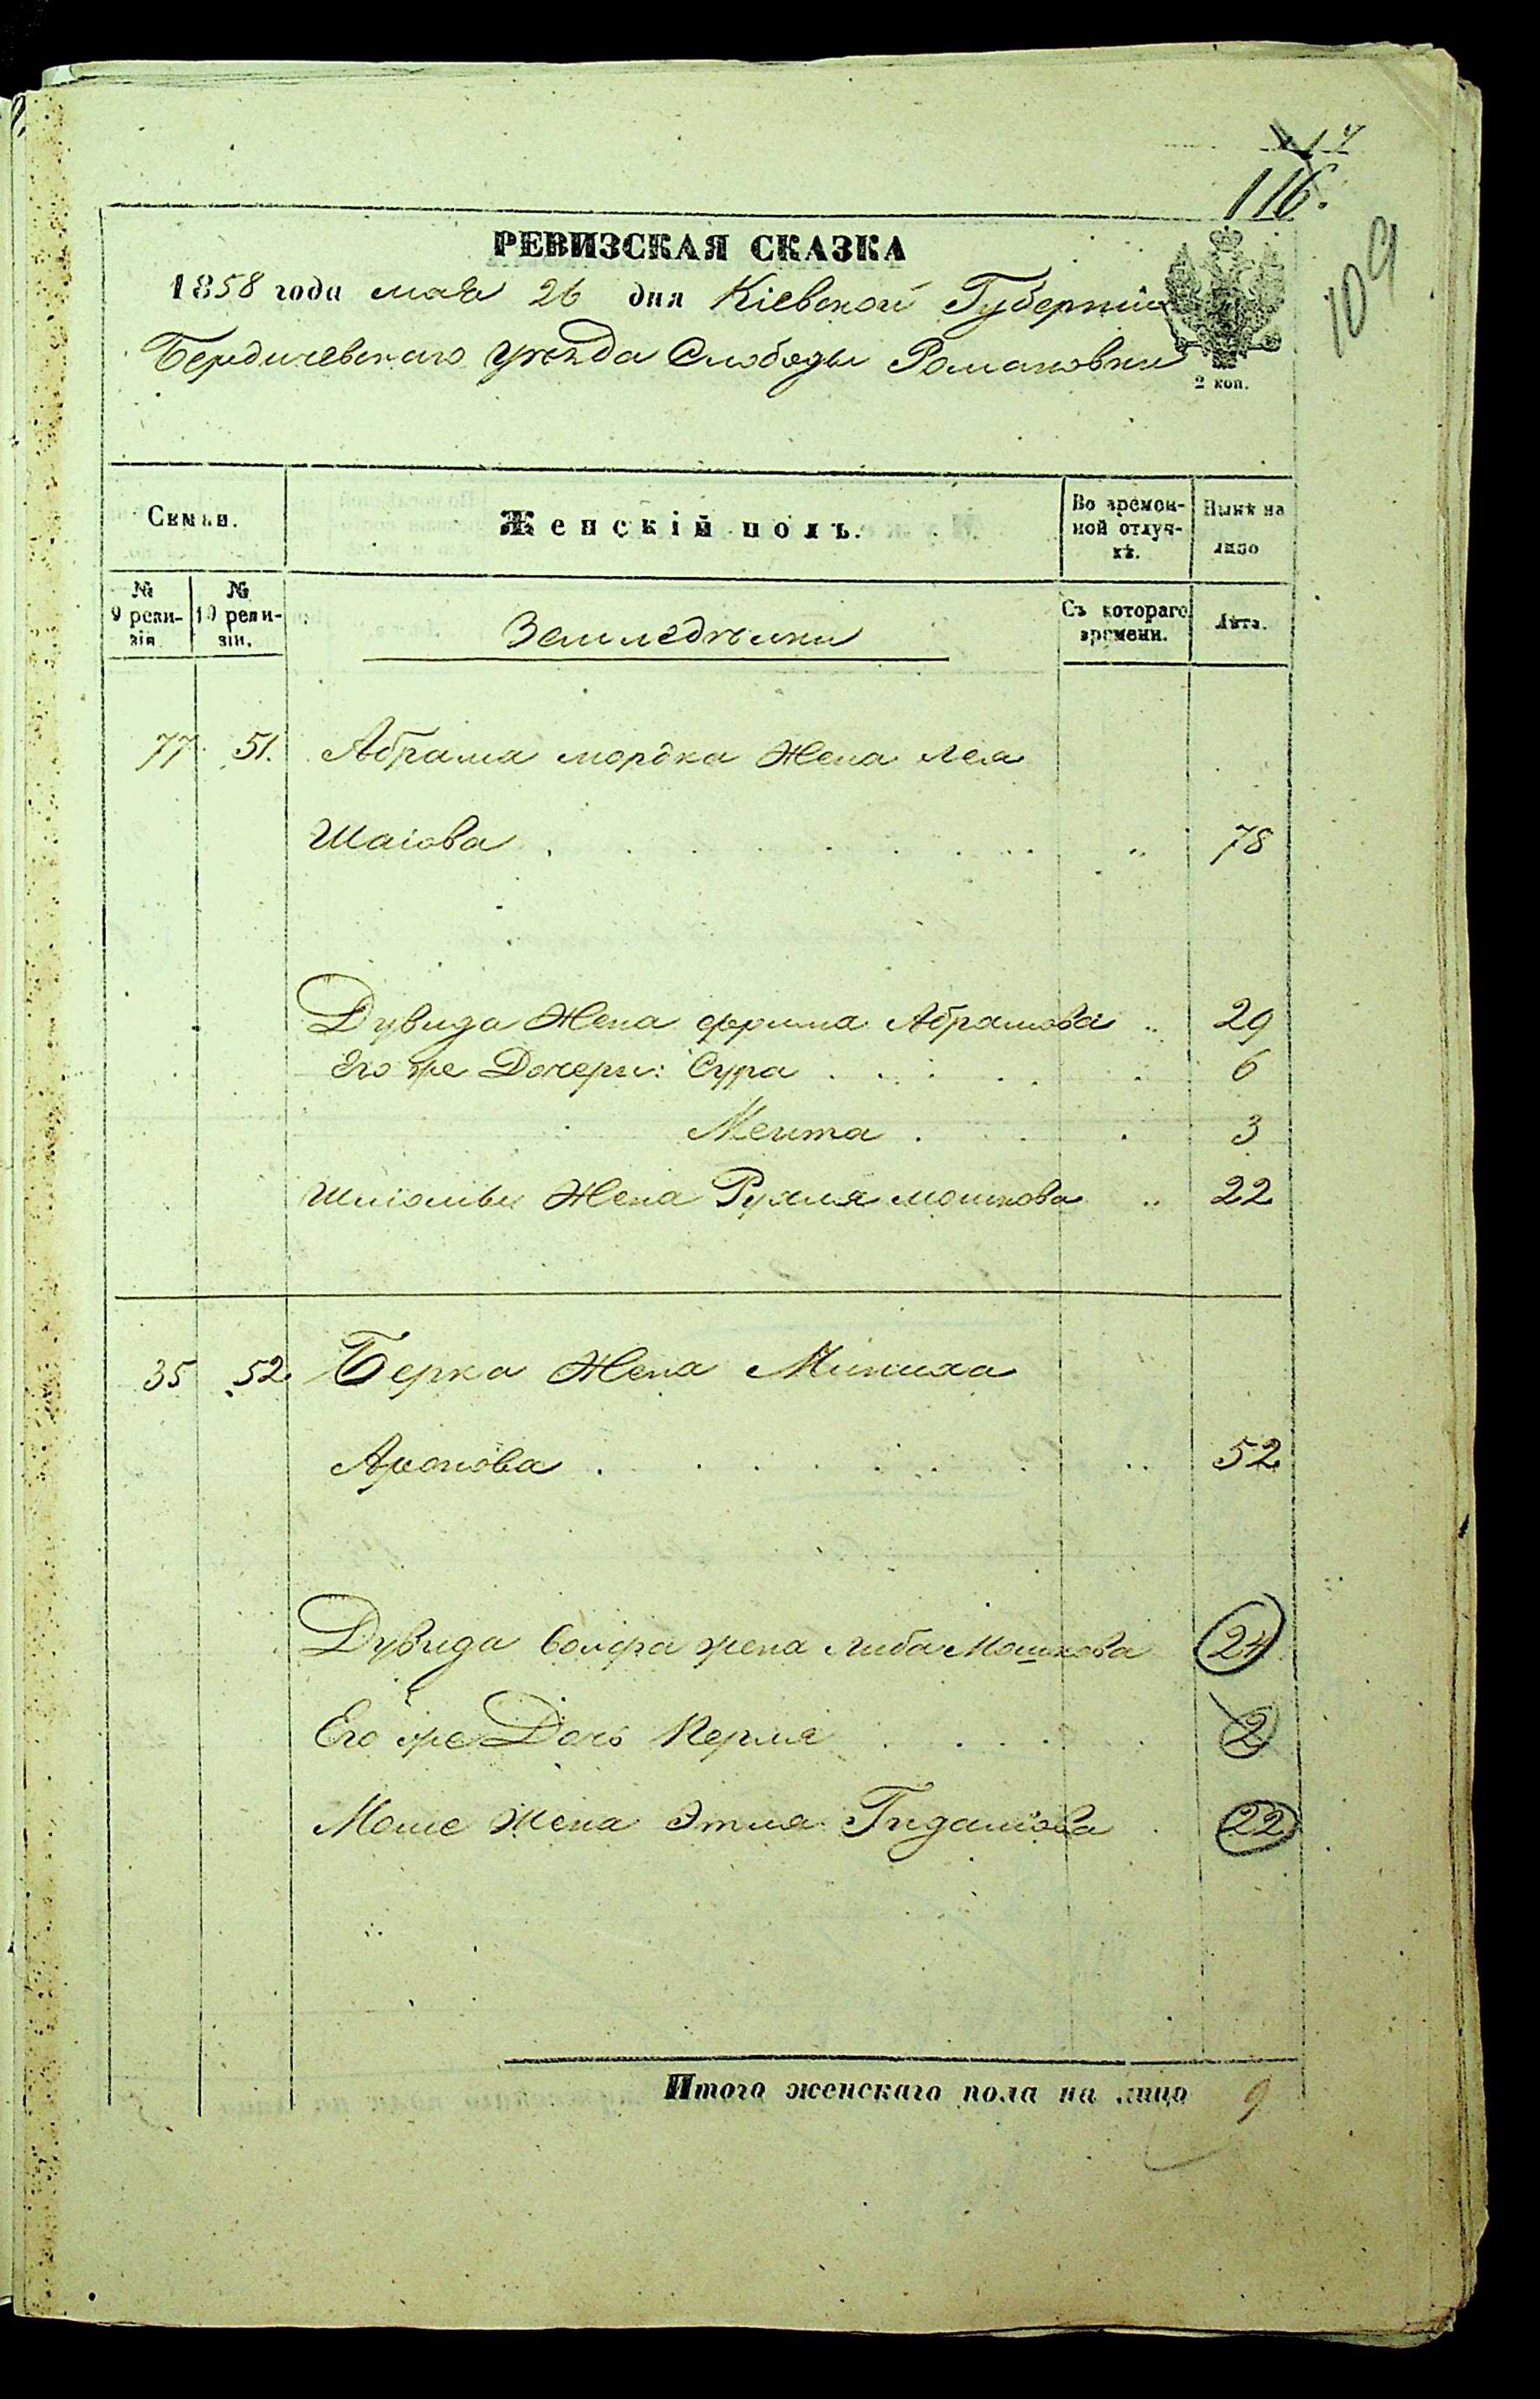 116.
109
РЕВИЗСКАЯ СКАЗКА
1858 года мая 26 дня Кіевской Губерніи
Бердичевскаго уѣзда Слободы Романовки
2 коп.
Семьи.
Женскій полъ.
Во времен-
ной отлуч-
кѣ.
Нынѣ на
лицо
№
9 реви-
зіи
№
10 реви-
зіи.
Земледѣльцы
Съ котораго
времени.
Лѣта.
77 51. Абрама мордка Жена Лея
Шаіова 78
Дувида Жена Фрима Абрамова 29
Его же Дочери: Сура 6
Мента 3
Шліомы Жена Рухля мошкова 22
35 52. Берка Жена Миниха
Аронова 52
Дувида Волфа жена Либа Мошкова 24
Его же Дочь Перля 2
Моше Жена Этля Гидалiова 22
Итого женскаго пола на лицо 9